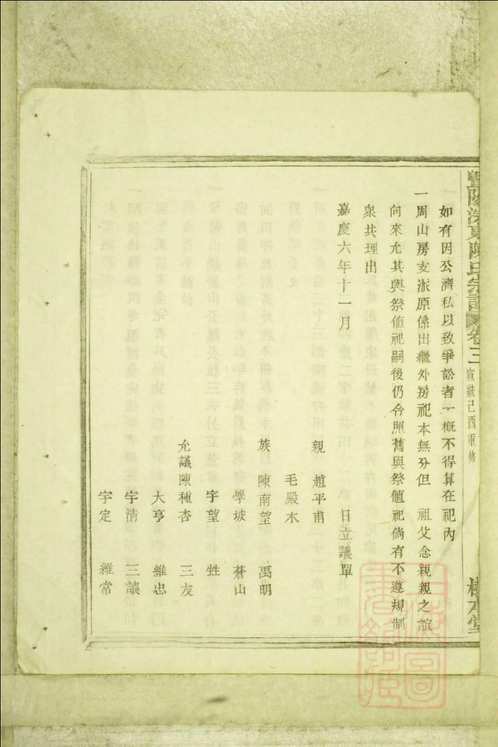 暨陽湶東陳氏宗譜 卷三 宣統己酉重修
如有因公濟私以致爭訟者一概不得算在祀內
一周山房支派原係出繼外房祀本無分但 祖父念親親之誼
向來尤其與祭值祀嗣後仍令照舊與祭值祀倘有不遵規制
衆共理出
嘉慶六年十一月 日立議單
親 趙平甫
毛殿木
族 陳南望 禹明
學坡 蒼山
宇望 甡
允議陳穗杏 三友
大亨 維忠
宇清 三議
宇定 維常